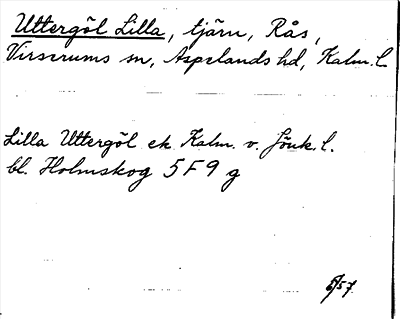 Uttergöl Lilla, tjärn, Rås,
Virserums sn, Aspelands hd, Kalm. l.
Lilla Uttergöl ek. Kalm. v. Jönk. l.
bl. Holmskog 5F9 g